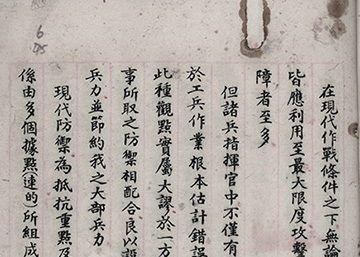 在現代作戰條件之下無論
皆應利用至最大限度攻擊
障者至多
但諸兵指揮官中不僅有
於工兵作業根本估計錯誤
此種觀點實屬大誤於一方
事所取之防禦相配合良以設
兵力並節約我之大部兵力
現代防禦為抵抗重點及
係由多個據點連的所組成